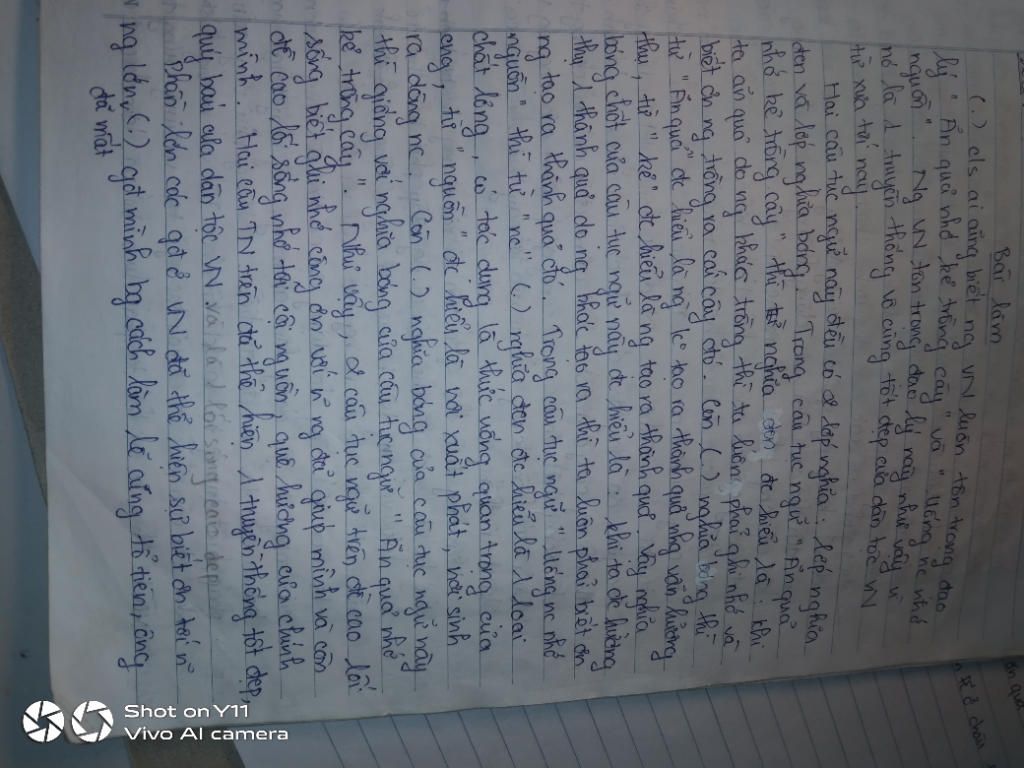 Bài làm
(.) c/s ai cũng biết ng VN luôn tôn trọng đạo
lý " Ăn quả nhớ kẻ trồng cây " và " Uống nc nhớ
nguồn ". Ng VN tôn trọng đạo lý này như vậy vì
nó là 1 truyền thống vô cùng tốt đẹp của dân tộc VN
từ xưa tới nay.
Hai câu tục ngữ này đều có 2 lớp nghĩa: lớp nghĩa
đen và lớp nghĩa bóng. Trong câu tục ngữ " Ăn quả
nhớ kẻ trồng cây " thì nghĩa đen đc hiểu là: khi
ta ăn quả do ng khác trồng thì ta luôn phải ghi nhớ và
biết ơn ng trồng ra cái cây đó. Còn (.) nghĩa bóng thì
từ " Ăn quả " đc hiểu là ng ko tạo ra thành quả nhg vẫn hưởng
thụ, từ " kẻ " đc hiểu là ng tạo ra thành quả. Vậy nghĩa
bóng chốt của câu tục ngữ này đc hiểu là: khi ta đc hưởng
thụ 1 thành quả do ng khác tạo ra thì ta luôn phải biết ơn
ng tạo ra thành quả đó. Trong câu tục ngữ " Uống nc nhớ
nguồn " thì từ " nc " (.) nghĩa đen đc hiểu là 1 loại
chất lỏng, có tác dụng là thức uống quan trọng của
ng, từ " nguồn " đc hiểu là nơi xuất phát, nơi sinh
ra dòng nc. Còn (.) nghĩa bóng của câu tục ngữ này
thì giống với nghĩa bóng của câu tục ngữ " Ăn quả nhớ
kẻ trồng cây ". Như vậy, 2 câu tục ngữ trên đề cao lối
sống biết ghi nhớ công ơn với n~ ng đã giúp mình và còn
đề cao lối sống nhớ tới cội nguồn, quê hương của chính
mình. Hai câu TN trên đã thể hiện 1 truyền thống tốt đẹp,
quý báu của dân tộc VN và là 1 lối sống cao đẹp
Phần lớn các gđ ở VN đã thể hiện sự biết ơn tới n~
ng lớn (.) gđ mình bg cách làm lễ cúng tổ tiên, ông
đã mất